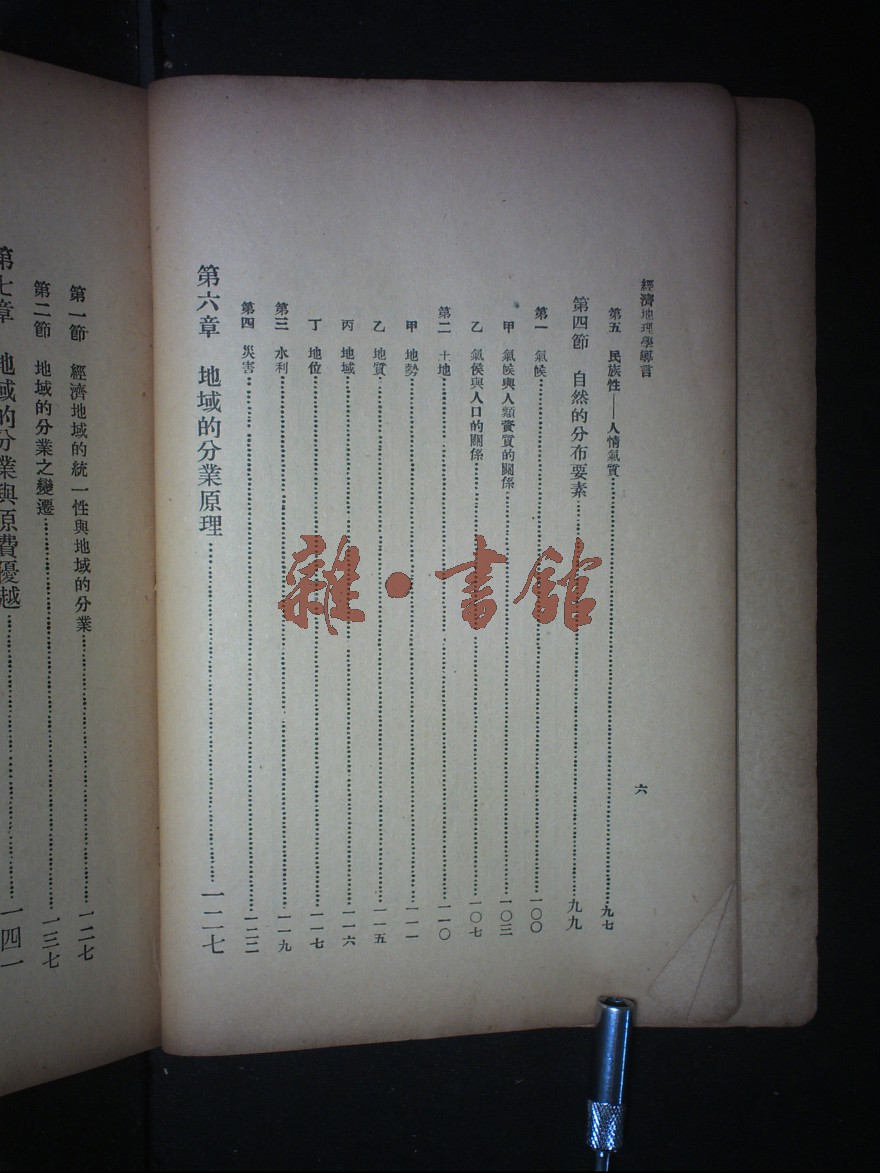 經濟地理學導言
六
第五　民族性——人情氣質……九七
第四節　自然的分布要素……九九
第一　氣候……一〇〇
甲　氣候與人類資質的關係……一〇三
乙　氣侯與人口的關係……一〇七
第二　土地……一一〇
甲　地勢……一一一
乙　地質……一一五
丙　地域……一一六
丁　地位……一一七
第三　水利……一一九
第四　災害……一二三
第六章　地域的分業原理……一二七
第一節　經濟地域的統一性與地域的分業……一二七
第二節　地域的分業之變遷……一三七
第七章　地域的分業與原費優越……一四一
雜·書館